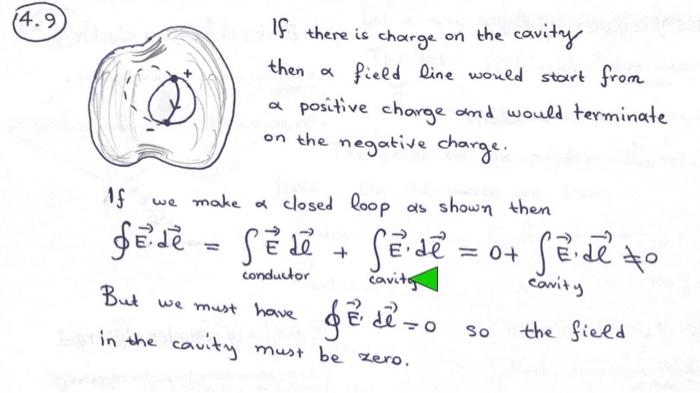 14.9
If there is charge on the cavity
then a field line would start from
a positive charge and would terminate
on the negative charge.
+
-
If we make a closed loop as shown then
∮E⃗·dl⃗ = ∫E⃗ dl⃗ + ∫E⃗·dl⃗ = 0+ ∫E⃗·dl⃗ ≠0
conductor cavity cavity
But we must have ∮E⃗·dl⃗ =0 so the field
in the cavity must be zero.